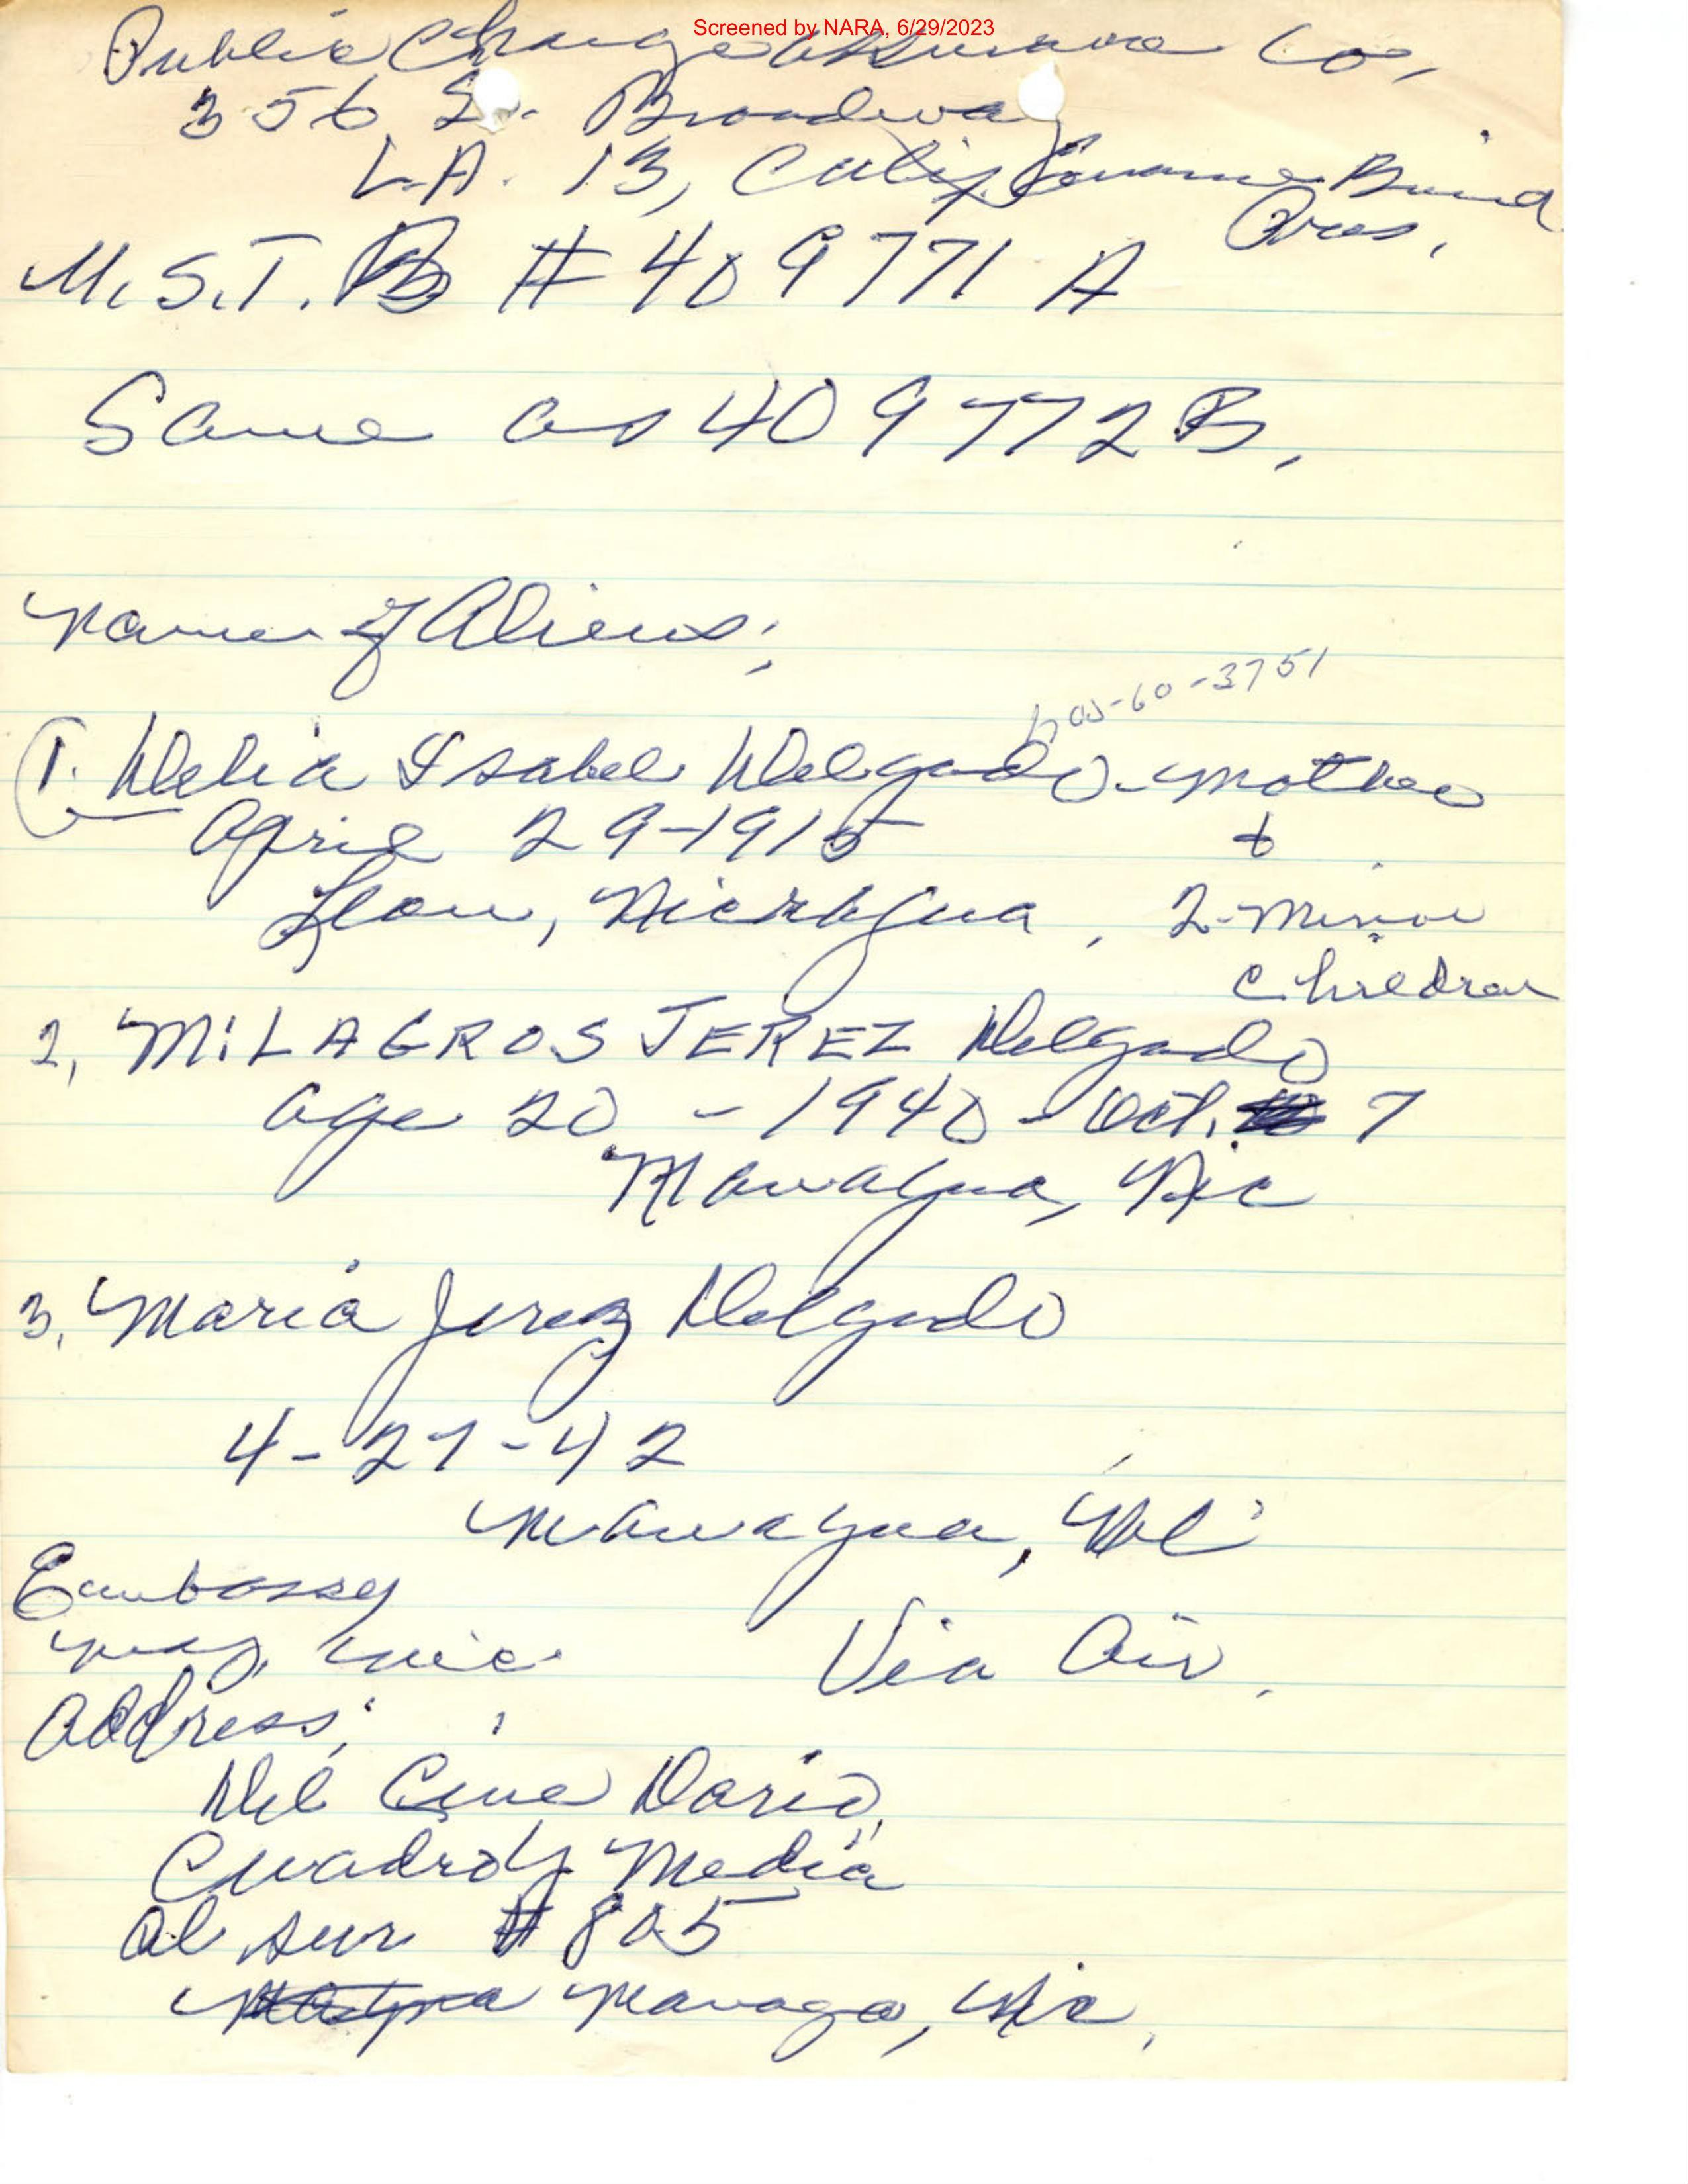 Screened by NARA, 6/29/2023
Public Charge Co,
356 So. Broadway
L.A. 13, Calif Bond
Pres,
M.S.T. B # 409771 A
Same as 409772B,
Name of Aliens;
-60-3751
1. Delia Isabel Delgado - Mother
April 29-1915 &
Leon, Nicragua, 2-Minor
Children
2, MiLAGROS JEREZ Delgado
age 20 - 1940 - Oct. 7
Managua, Nic
3, Maria Jerez Delgado
4-27-42
Managua, Nic
Embassy
nic. Via Air,
address;
Del Cine Dario,
Cuadra y Media
al sur # 805
Managa, Nic,